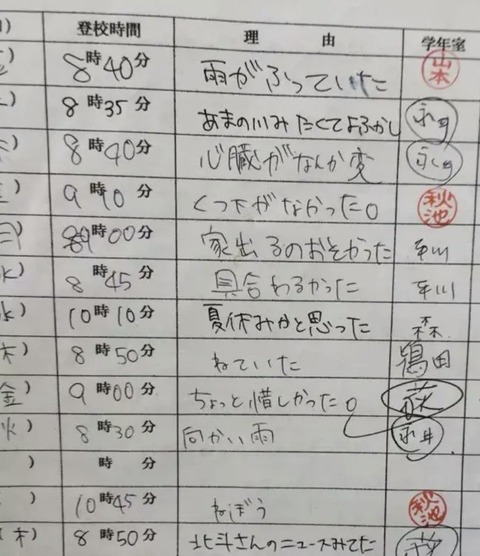 登校時間 理由 学年室
8時40分 雨がふっていた 山本
8時35分 あまの川みたくてよふかし 永田
8時40分 心臓がなんか変
9時90分 くつ下がなかった。 秋池
89時00分 家出るのおそかった 平川
水) 8時45分 具合わるかった 平川
水) 10時10分 夏休みかと思った 森
木) 8時50分 ねていた 鴇田
金) 9時00分 ちょっと惜しかった。
火) 8時30分 向かい雨 永井
) 時 分
) 10時45分 ねぼう 秋池
(木) 8時50分 北斗さんのニュースみてた